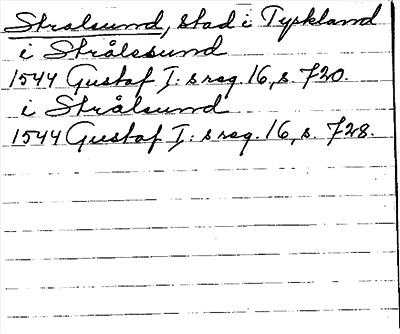 Stralsund, stad i Tyskland
i Strålesund
1544 Gustaf I: s reg. 16, s. 720.
i Strålsund
1544 Gustaf I: s reg. 16, s. 728.